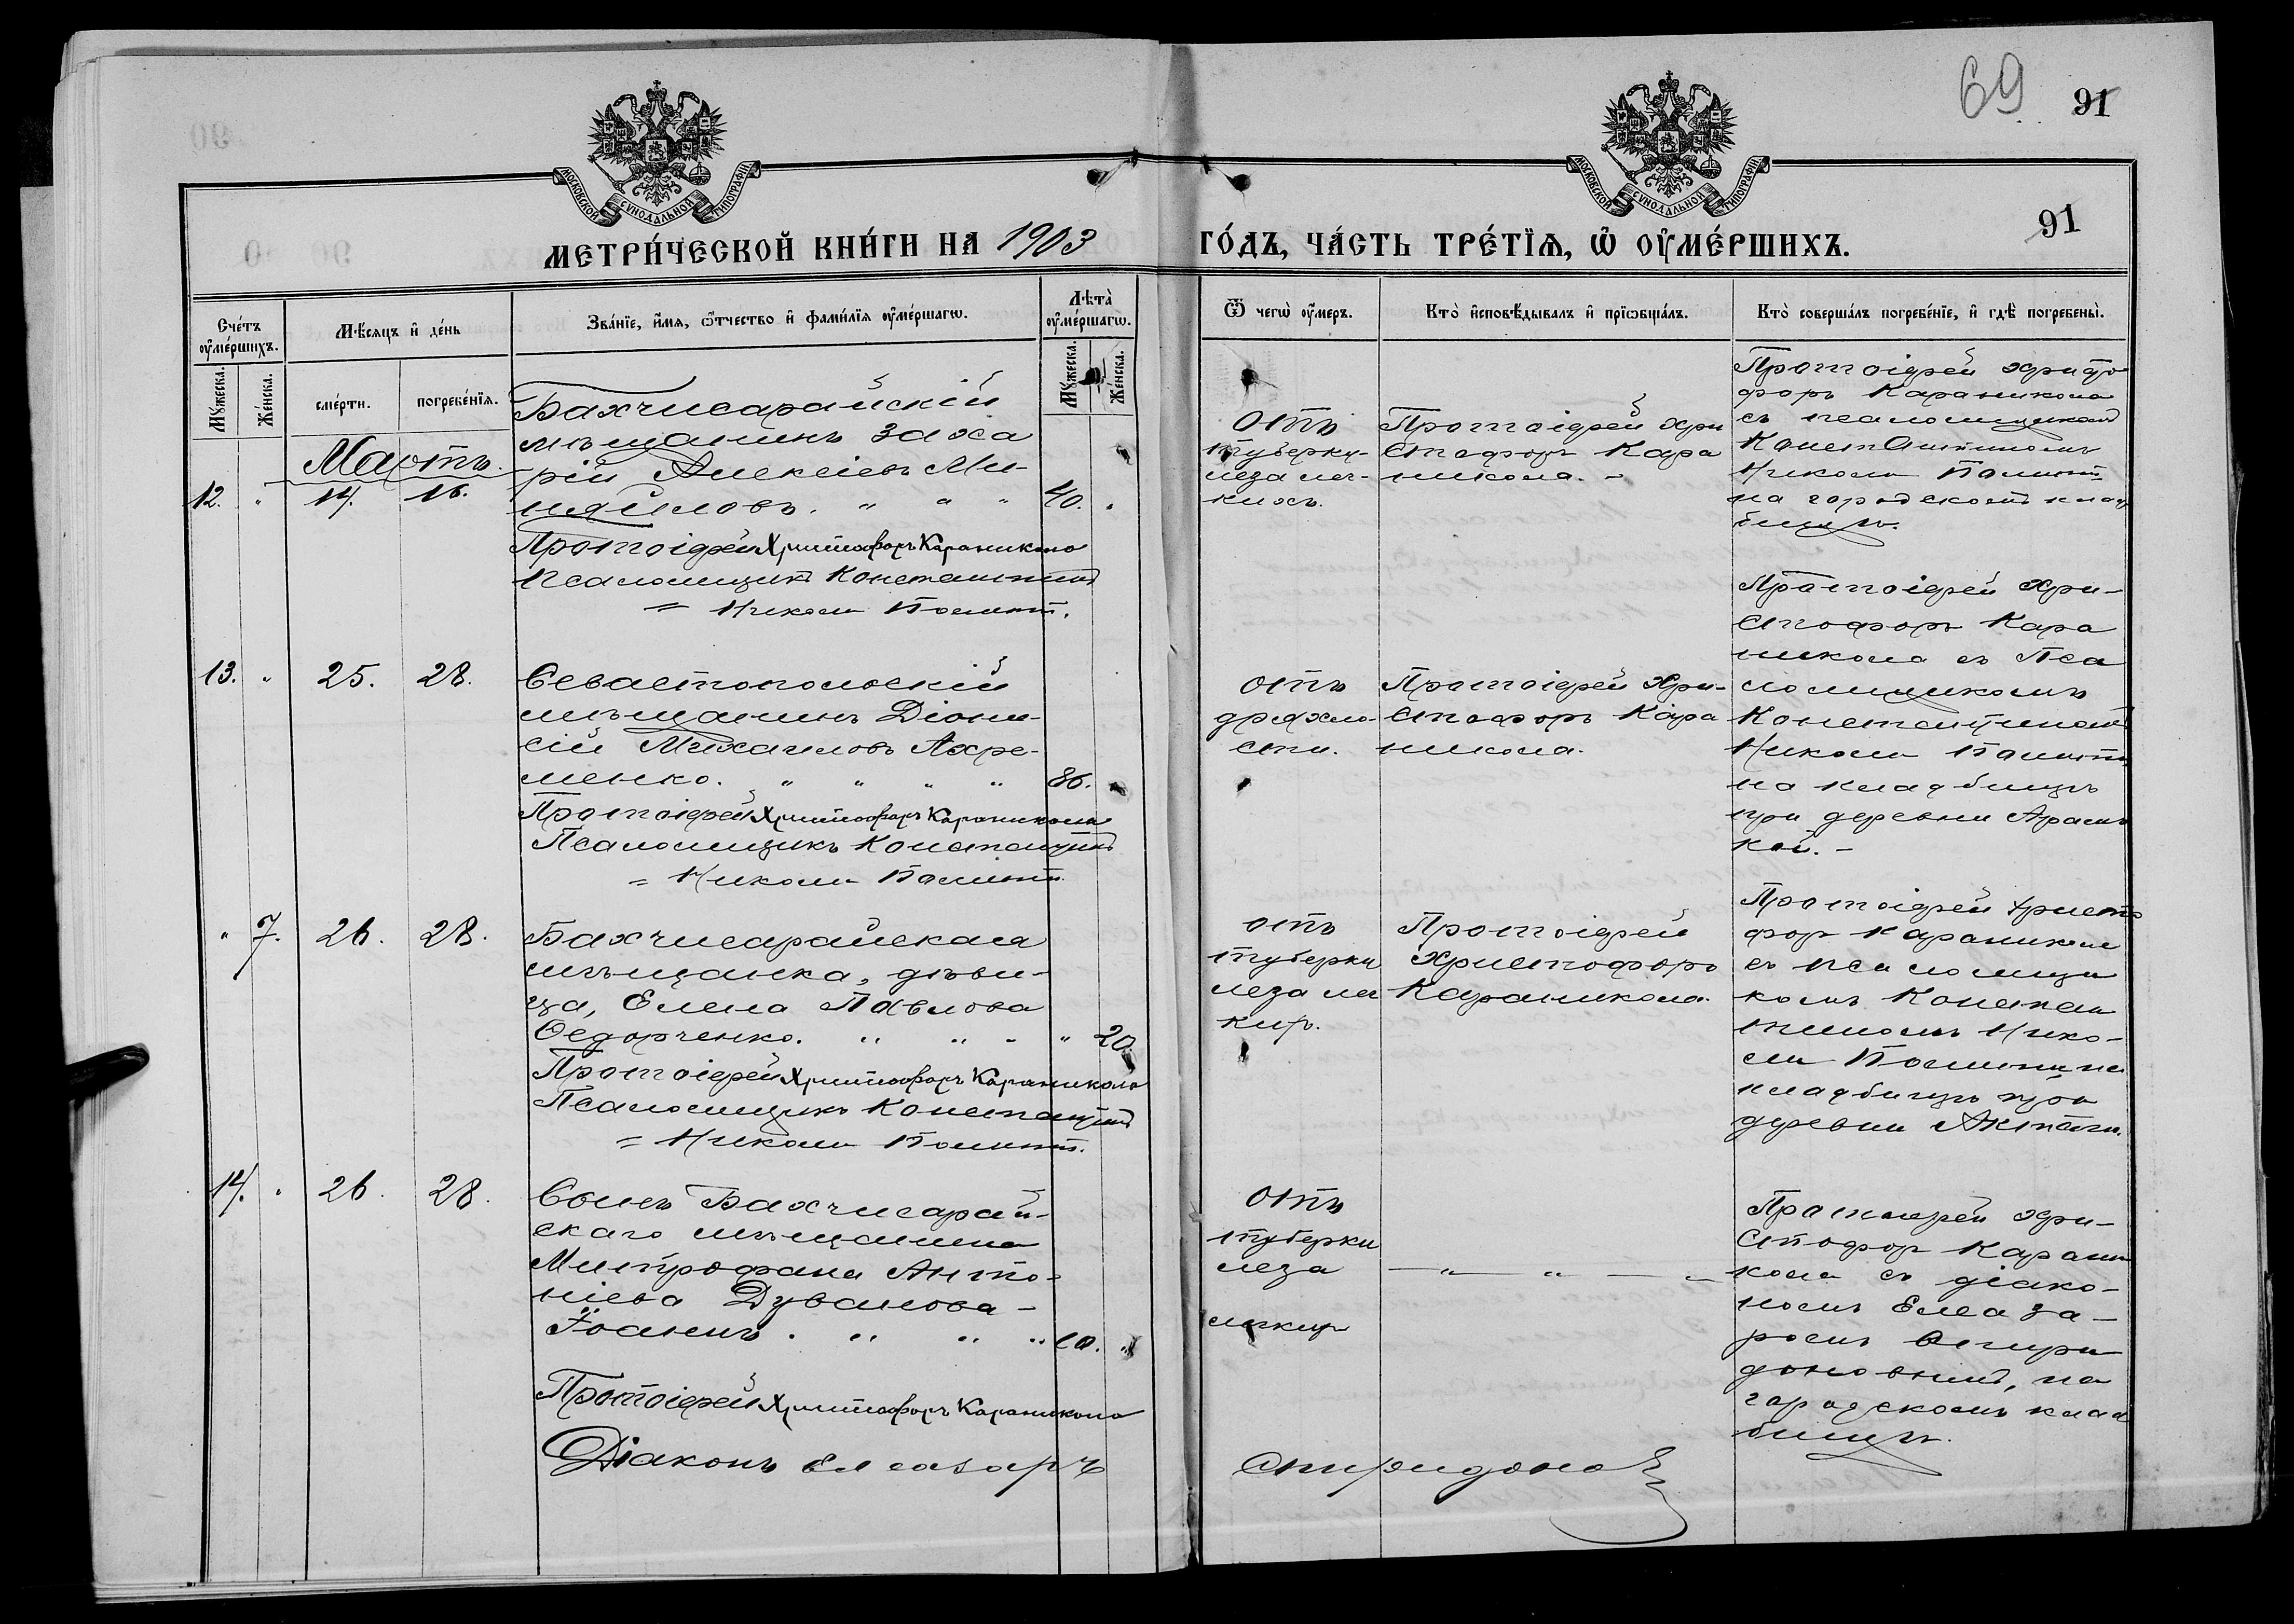 69 91
МОСКОВСКОЙ СУНОДАЛЬНОЙ ТИПОГРАФІИ
МОСКОВСКОЙ СУНОДАЛЬНОЙ ТИПОГРАФІИ
91
МЕТРИ́ЧЕСКОЙ КНИ́ГИ НА 1903 ГО́ДЪ, ЧА́СТЬ ТРЕ́ТЇѦ, Ѡ҆ ОУ҆МЕ́РШИХЪ.
Сче́тъ оу҆ме́ршихъ.
Мꙋ́жеска.
Же́нска.
Мѣ́сяцъ и҆ де́нь
сме́рти.
погребе́нїѧ.
Зва́нїе, и҆́мѧ, ѻ҆́тчество и҆ фами́лїѧ оу҆ме́ршагѡ.
Лѣта̀ оу҆ме́ршагѡ.
Мꙋ́жеска.
Же́нска.
Ѿ чегѡ̀ оу҆́меръ.
Кто̀ и҆сповѣ́дывалъ и҆ прїѡбща́лъ.
Кто̀ соверша́лъ погребе́нїе, и҆ гдѣ̀ погребены̀.
Мартъ.
12. " 14. 16.
Бахчисарайскій
мѣщанинъ Заха
рій Алексіевъ Ми-
няйловъ. " " " 40. "
Протоіерей Христофоръ Караникола
Псаломщикъ Константинъ
= Николи Полити.
отъ
туберку-
леза лег-
кихъ.
Протоіерей Хри
стофоръ Кара
никола. -
Протоіерей Христо
форъ Караникола
съ псаломщикомъ
Константиномъ
Николи Полити
на городскомъ клад
бищѣ.
13. " 25. 28.
Севастопольскій
мѣщанинъ Діони-
сій Михаиловъ Ахре-
менко. " " " " 86. "
Протоіерей Христофоръ Караникола
Псаломщикъ Константинъ
= Николи Полити.
отъ
дряхло-
сти.
Протоіерей Хри-
стофоръ Кара
никола.
Протоіерей Хри-
стофоръ Кара
никола съ Пса
ломщикомъ
Константиномъ
Николи Полити
на кладбищѣ
при деревни
кой. -
" 7. 26. 28.
Бахчисарайская
мѣщанка, дѣви-
ца, Елена Павлова
Ѳедорченко. " " " " 20.
Протоіерей Христофоръ Караникола
Псаломщикъ Константинъ
= Николи Полити.
отъ
туберку
леза лег
кир.
Протоіерей
Христофоръ
Караникола.
Протоіерей Христо
фор Караникола
съ псаломщи
комъ Констан
тиномъ Нико-
ли Полити на
кладбищѣ при
деревни Актачи.
14. " 26. 28.
Сынъ Бахчисарай-
скаго мѣщанина
Митрофана Анто-
ніева Дуванова -
Іоаннъ. " " " 10. "
Протоіерей Христофоръ Караникола
Діаконъ Елеазаръ Спиридонов
отъ
туберку
леза
легких
— " " — "
Протоіерей Хри-
стофор Карани
кола съ діако-
номъ Елеаза-
ромъ Спири
доновымъ, на
городскомъ клад
бищѣ.